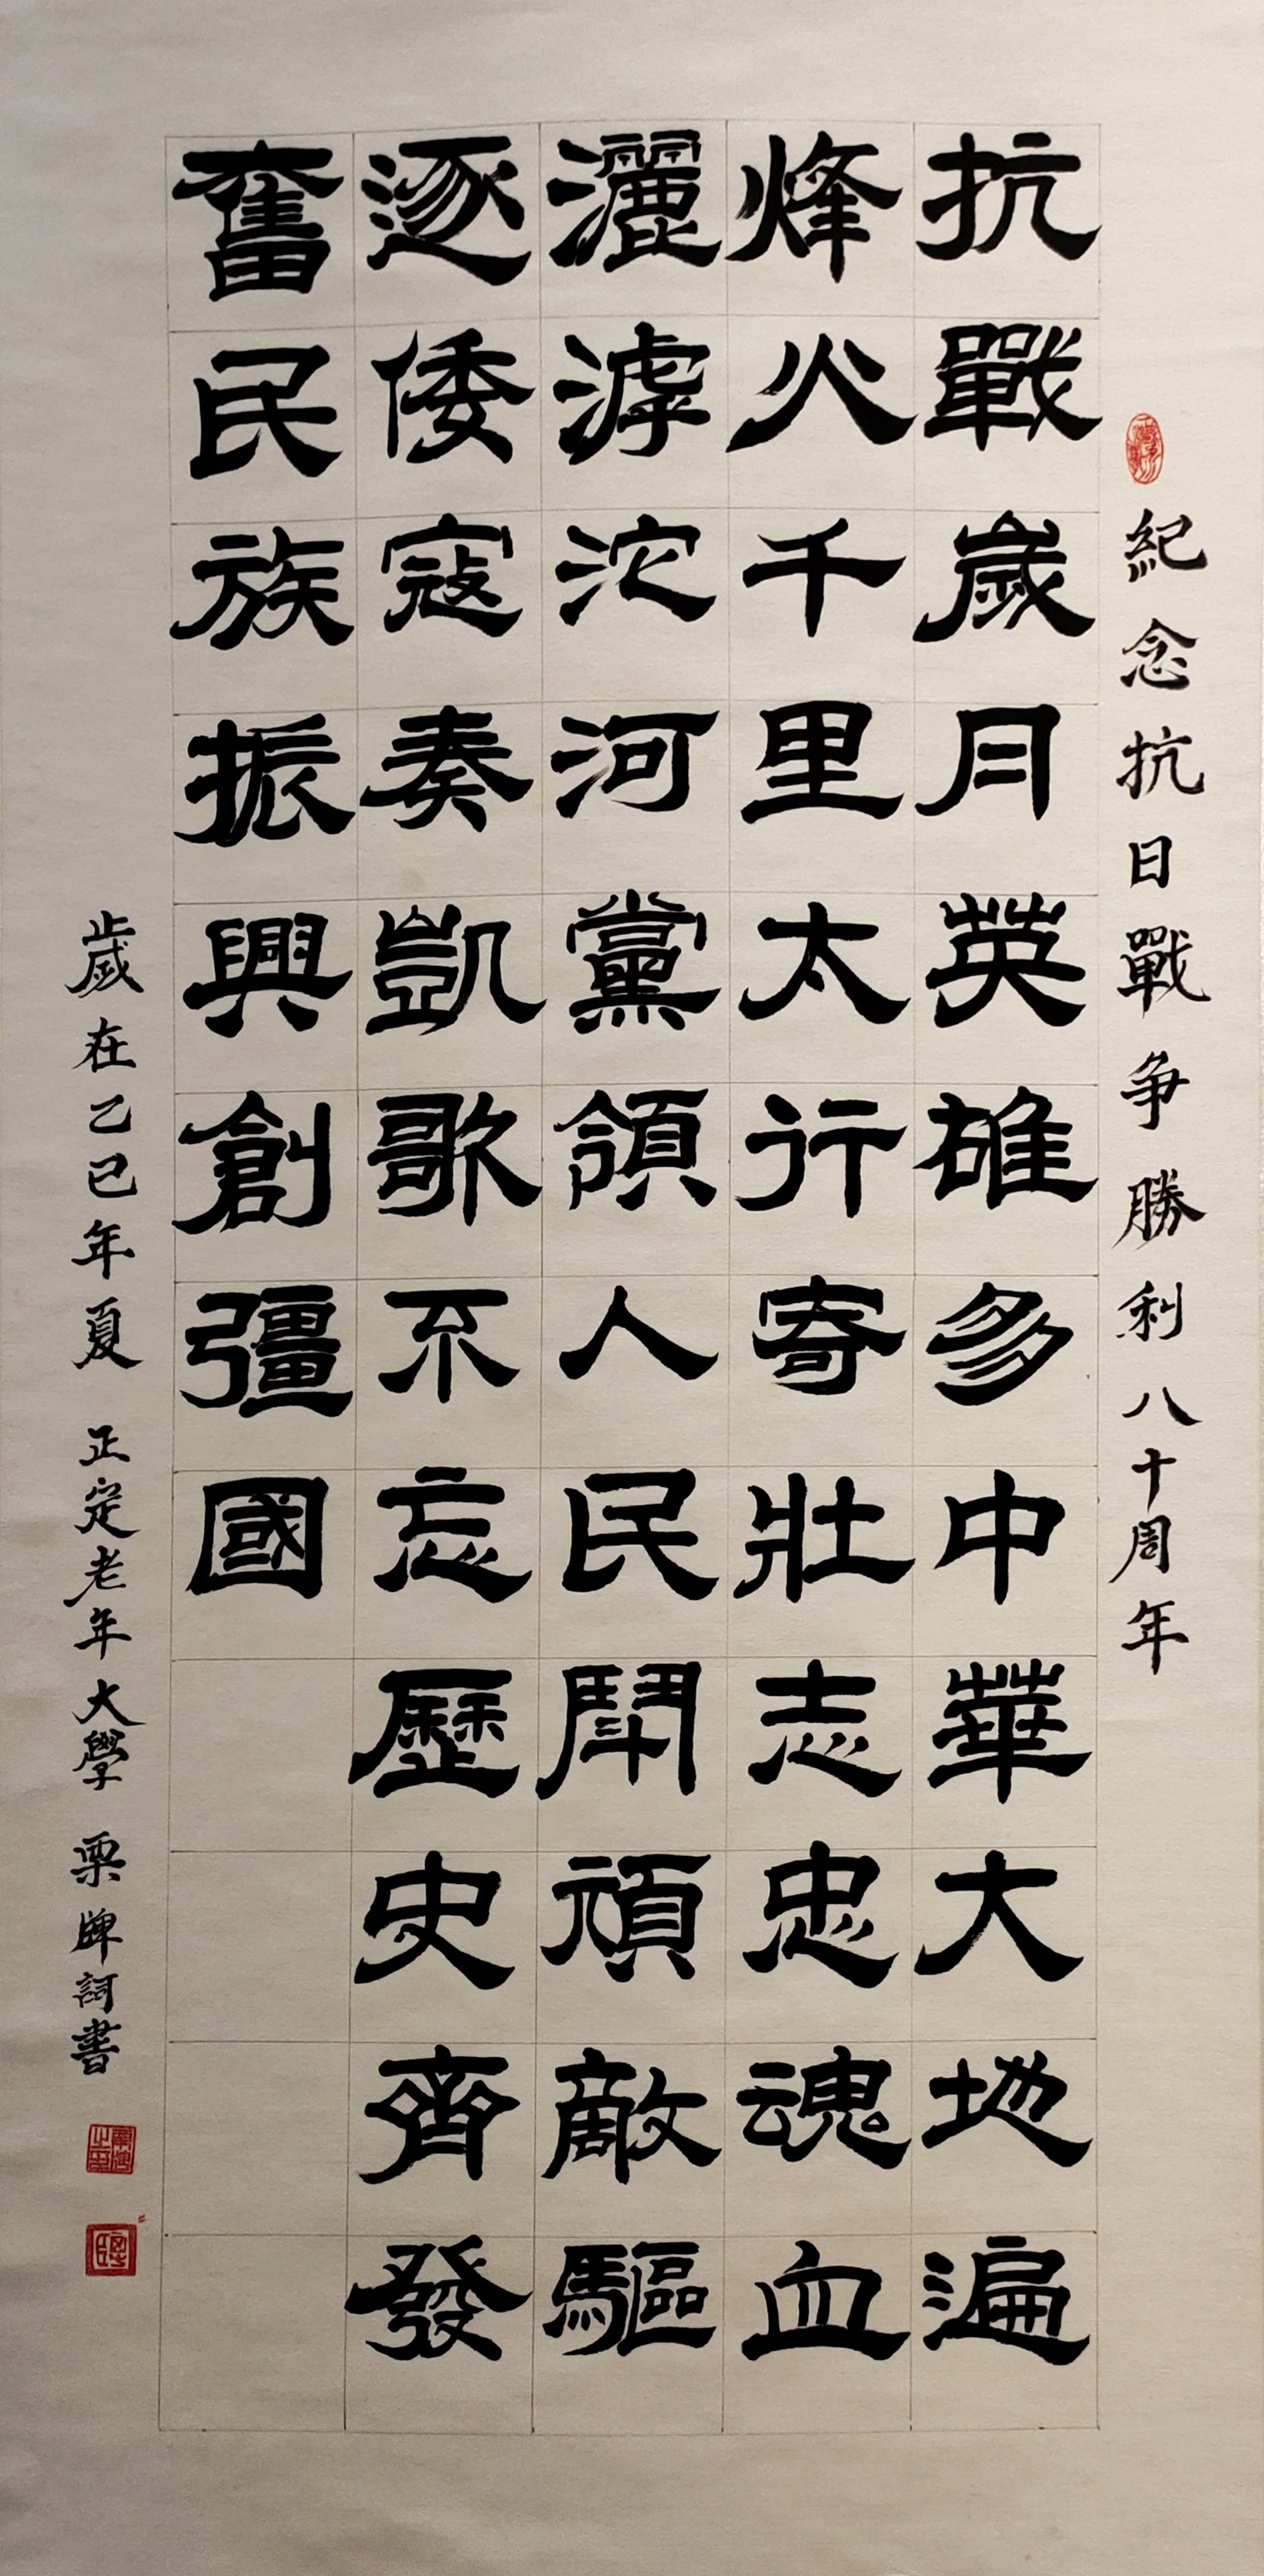 紀念抗日戰争勝利八十周年
抗戰歲月英雄多中華大地遍
烽火千里太行寄壯志忠魂血
灑滹沱河黨領人民鬥頑敵驅
逐倭寇奏凱歌不忘歷史齊發
奮民族振興創彊國
歲在乙巳年夏 正定老年大學 栗牌詞書